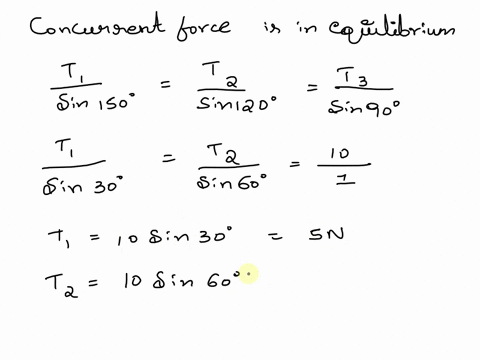 Concurrent force is in equilibrium
T₁/Sin 150° = T₂/Sin 120° = T₃/Sin 90°
T₁/Sin 30° = T₂/Sin 60° = 10/1
T₁ = 10 Sin 30° = 5N
T₂ = 10 Sin 60°